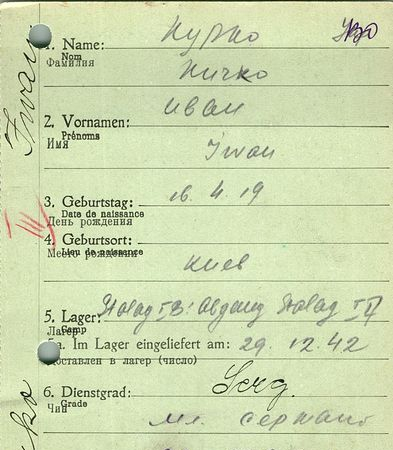 1. Name: Нурко
Nom
Фамилия
Nurko
2. Vornamen: Иван
Prénoms
Имя
Iwan
3. Geburtstag: 16. 4. 19
Date de naissance
День рождения
4. Geburtsort:
Lieu de naissance
Место рождения
Киев
5. Lager: Stalag IB: Abgang Stalag
Camp
Лагер
5a. Im Lager eingeliefert am: 29. 12. 42
Доставлен в лагер (число)
6. Dienstgrad: Serg.
Grade
Чин
мл. сержант
Iwan